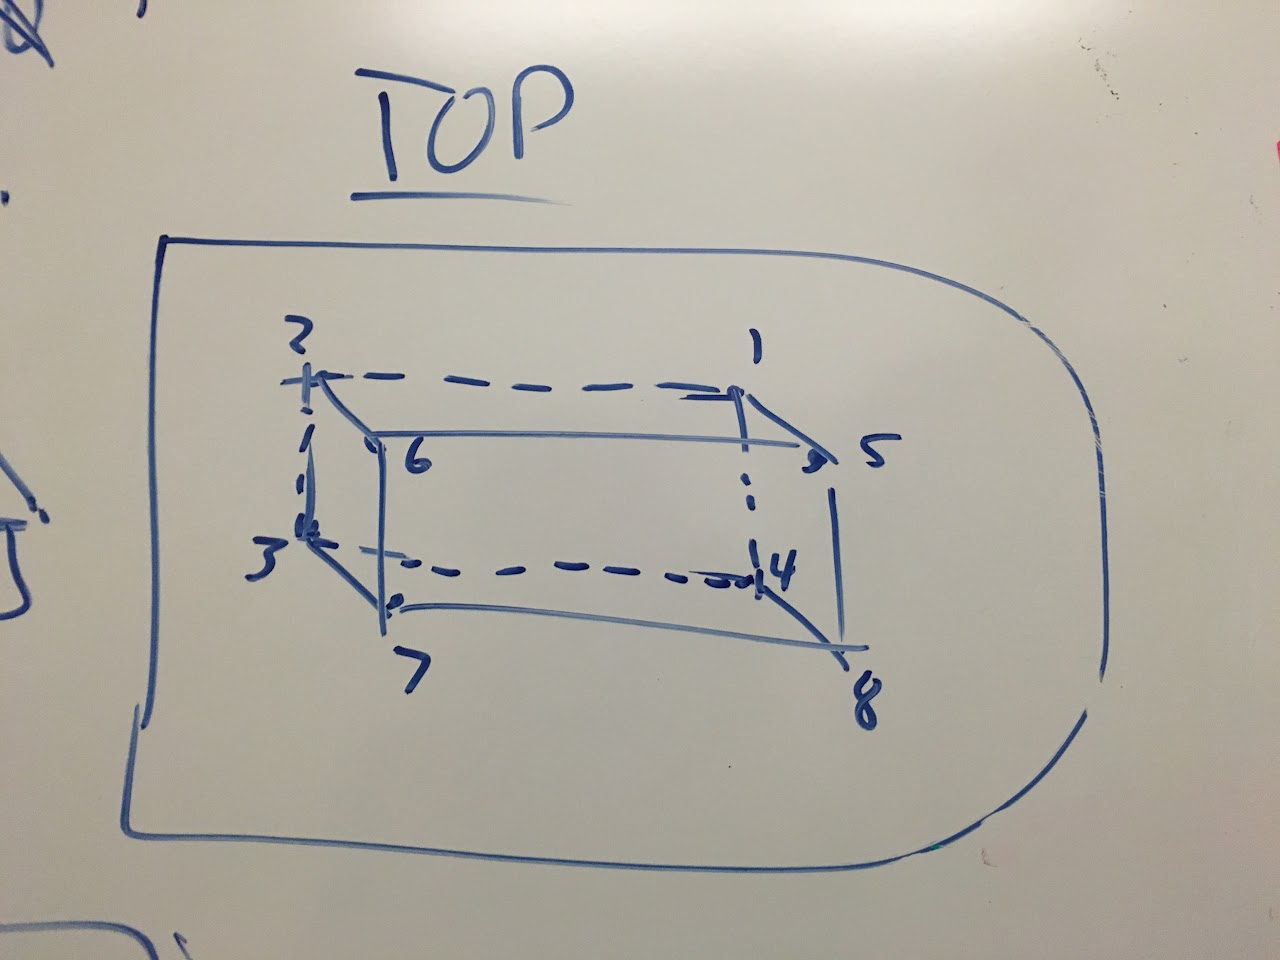 TOP
2 1
6 5
3 4
7 8